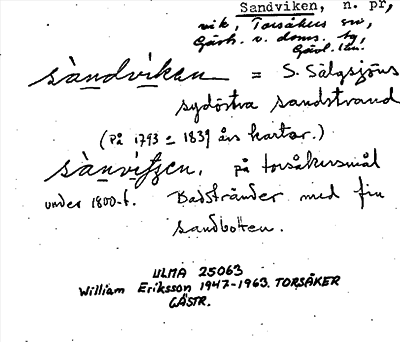 Sandviken, n. pr,
vik, Torsåkers sn,
Gävb. v. doms. hg,
Gävl. län.
sàndvikan = S. Sälgsjöns
sydöstra sandstrand
(på 1793 = 1839 års kartor.)
sànvitjen, på torsåkersmål
under 1800-t. Badstränder med fin
sandbotten.
ULMA 25063
William Eriksson 1947-1963. TORSÅKER
GÄSTR.